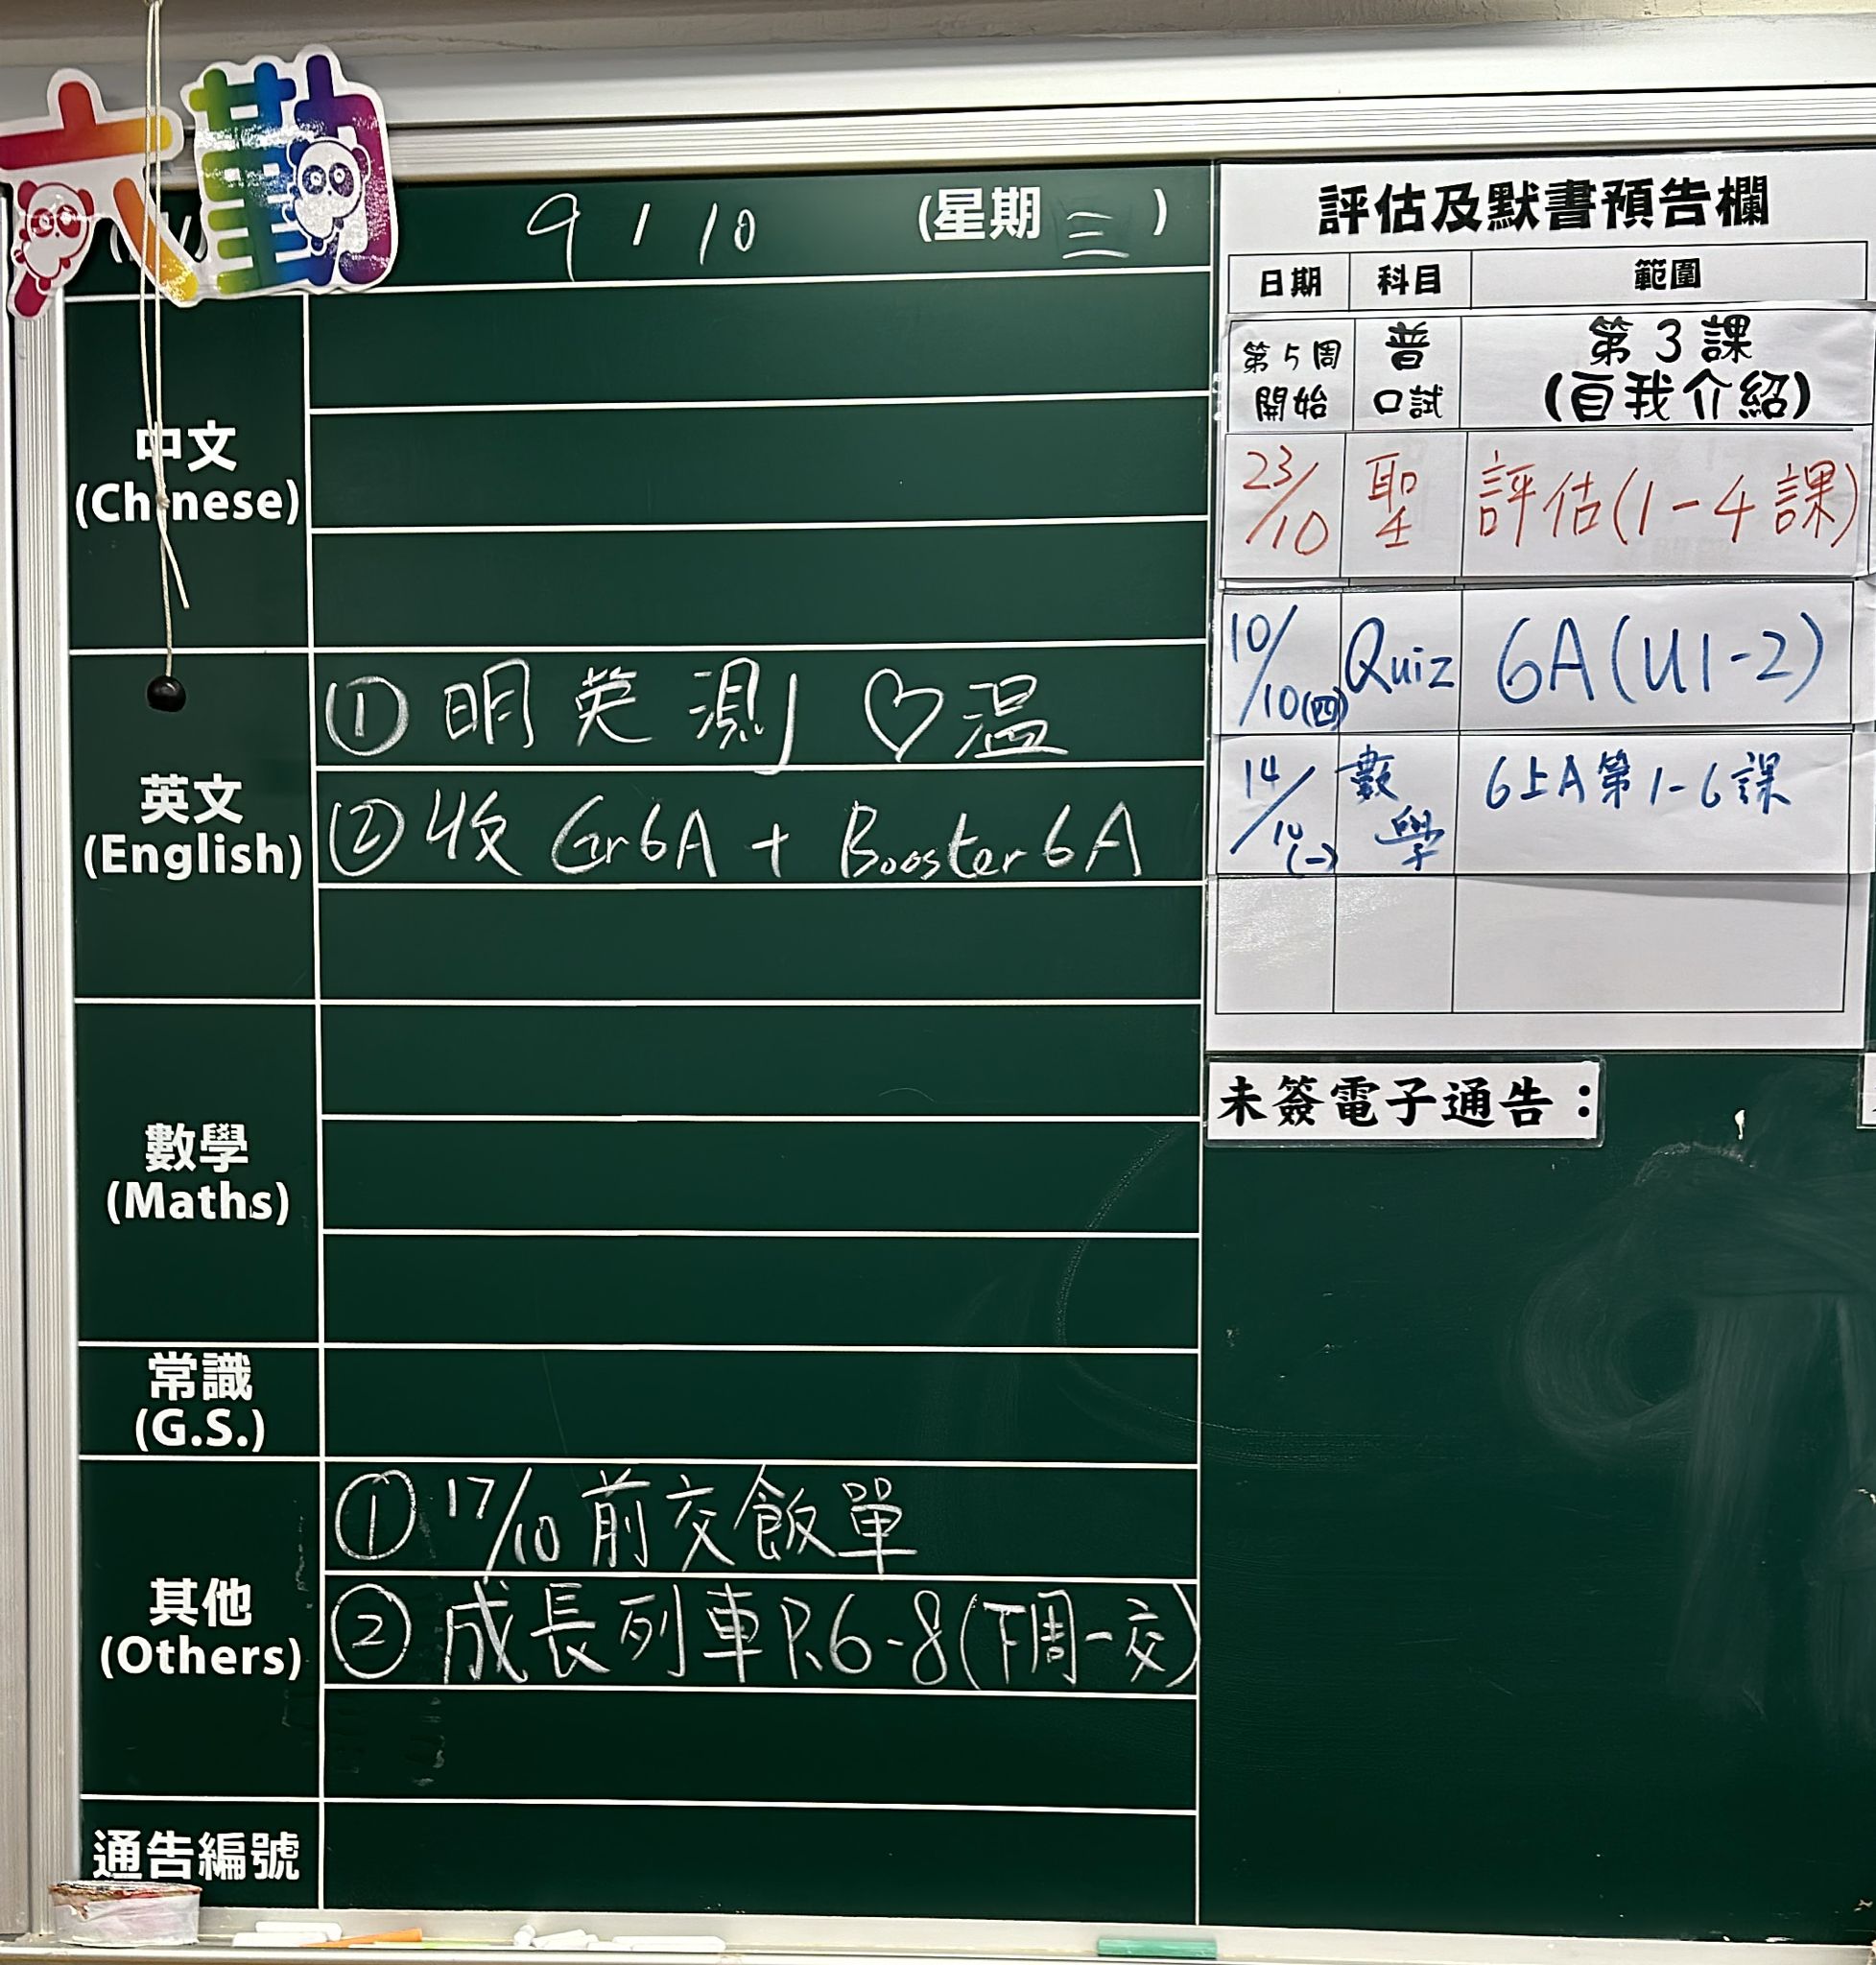 六勤
9 / 10 (星期三)
中文
(Chinese)
英文
(English)
① 明英測 ♡温
② 收 Gr6A + Booster 6A
數學
(Maths)
常識
(G.S.)
其他
(Others)
① 17/10 前交飯單
② 成長列車P.6-8(下周一交)
通告編號
評估及默書預告欄
日期 科目 範圍
第5周開始 普口試 第3課(自我介紹)
23/10 聖 評估(1-4課)
10/10(四) Quiz 6A(U1-2)
14/10(一) 數學 6上A第1-6課
未簽電子通告：